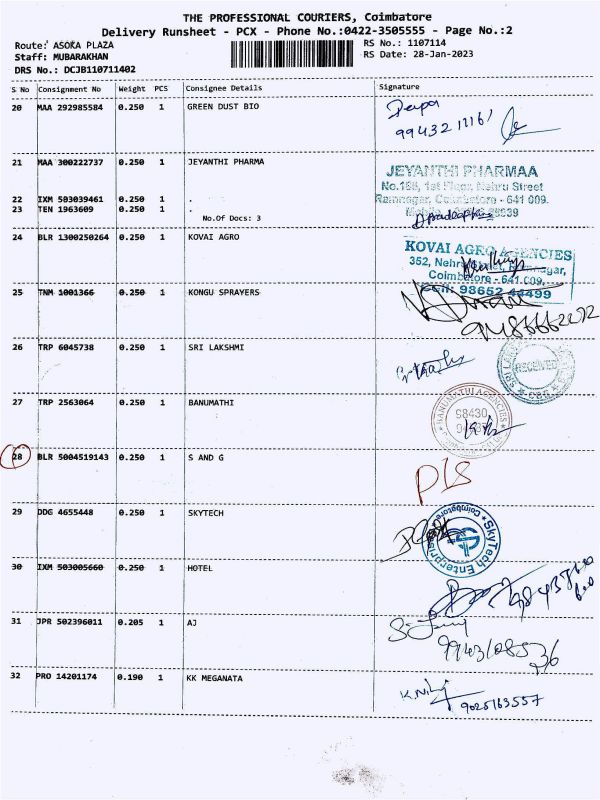 THE PROFESSIONAL COURIERS, Coimbatore
Delivery Runsheet - PCX - Phone No.:0422-3505555 - Page No.:2
Route: ASOKA PLAZA
Staff: MUBARAKHAN
DRS No.: DCJB110711402
RS No.: 1107114
RS Date: 28-Jan-2023
S No Consignment No Weight PCS Consignee Details Signature
20 MAA 292985584 0.250 1 GREEN DUST BIO
21 MAA 300222737 0.250 1 JEYANTHI PHARMA
JEYANTHI PHARMAA
No.188, 1st Floor, Nehru Street
Ramnagar, Coimbatore - 641 009.
22 IXM 503039461 0.250 1 .
23 TEN 1963609 0.250 1 .
No.Of Docs: 3
24 BLR 1300250264 0.250 1 KOVAI AGRO
KOVAI AGRO AGENCIES
352, Nehru Street, Ramnagar,
Coimbatore - 641 009.
Cell: 98652 44499
25 TNM 1001366 0.250 1 KONGU SPRAYERS
26 TRP 6045738 0.250 1 SRI LAKSHMI
RECEIVED
27 TRP 2563064 0.250 1 BANUMATHI
BANUMATHI AGENCIES
98430
28 BLR 5004519143 0.250 1 S AND G
PLS
29 DDG 4655448 0.250 1 SKYTECH
SkyTech Enterprises
Coimbatore
30 IXM 503005660 0.250 1 HOTEL
31 JPR 502396011 0.205 1 AJ
32 PRO 14201174 0.190 1 KK MEGANATA
9025163557